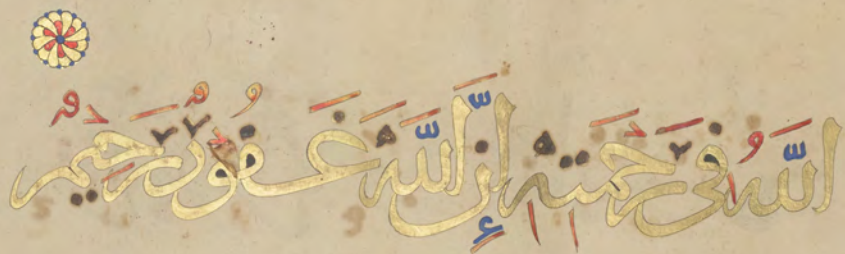 اللَّهُ فِي رَحْمَتِهِ إِنَّ اللَّهَ غَفُورٌ رَحِيمٌ